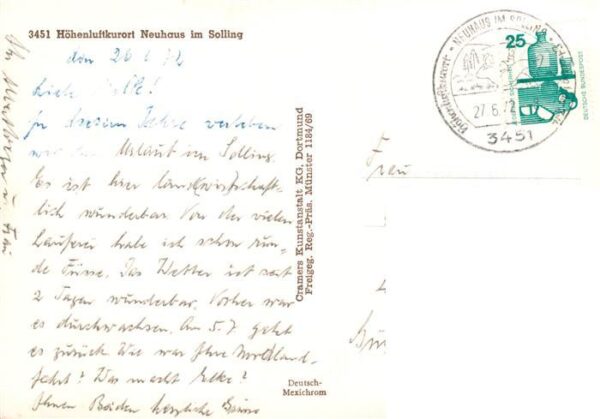 3451 Höhenluftkurort Neuhaus im Solling
den 26.6.72
In diesem Jahre verleben
wir den Urlaub im Solling.
Es ist hier land(wirt)schaft-
lich wunderbar. Von der vielen
Lauferei habe ich schon run-
de Füsse. Das Wetter ist seit
2 Tagen wunderbar. Vorher war
es durchwachsen. Am 5.7 geht
es zurück. Wie war Ihre Nordland-
fahrt? Was macht Elke?
Ihnen Beiden herzliche Grüsse
u. Frau
Cramers Kunstanstalt KG, Dortmund
Freigeg. Reg.-Präs. Münster 1184/69
Deutsch-
Mexichrom
NEUHAUS IM SOLLING
Höhenluftkurort
27.6.72
3451
25
DEUTSCHE BUNDESPOST
Frau